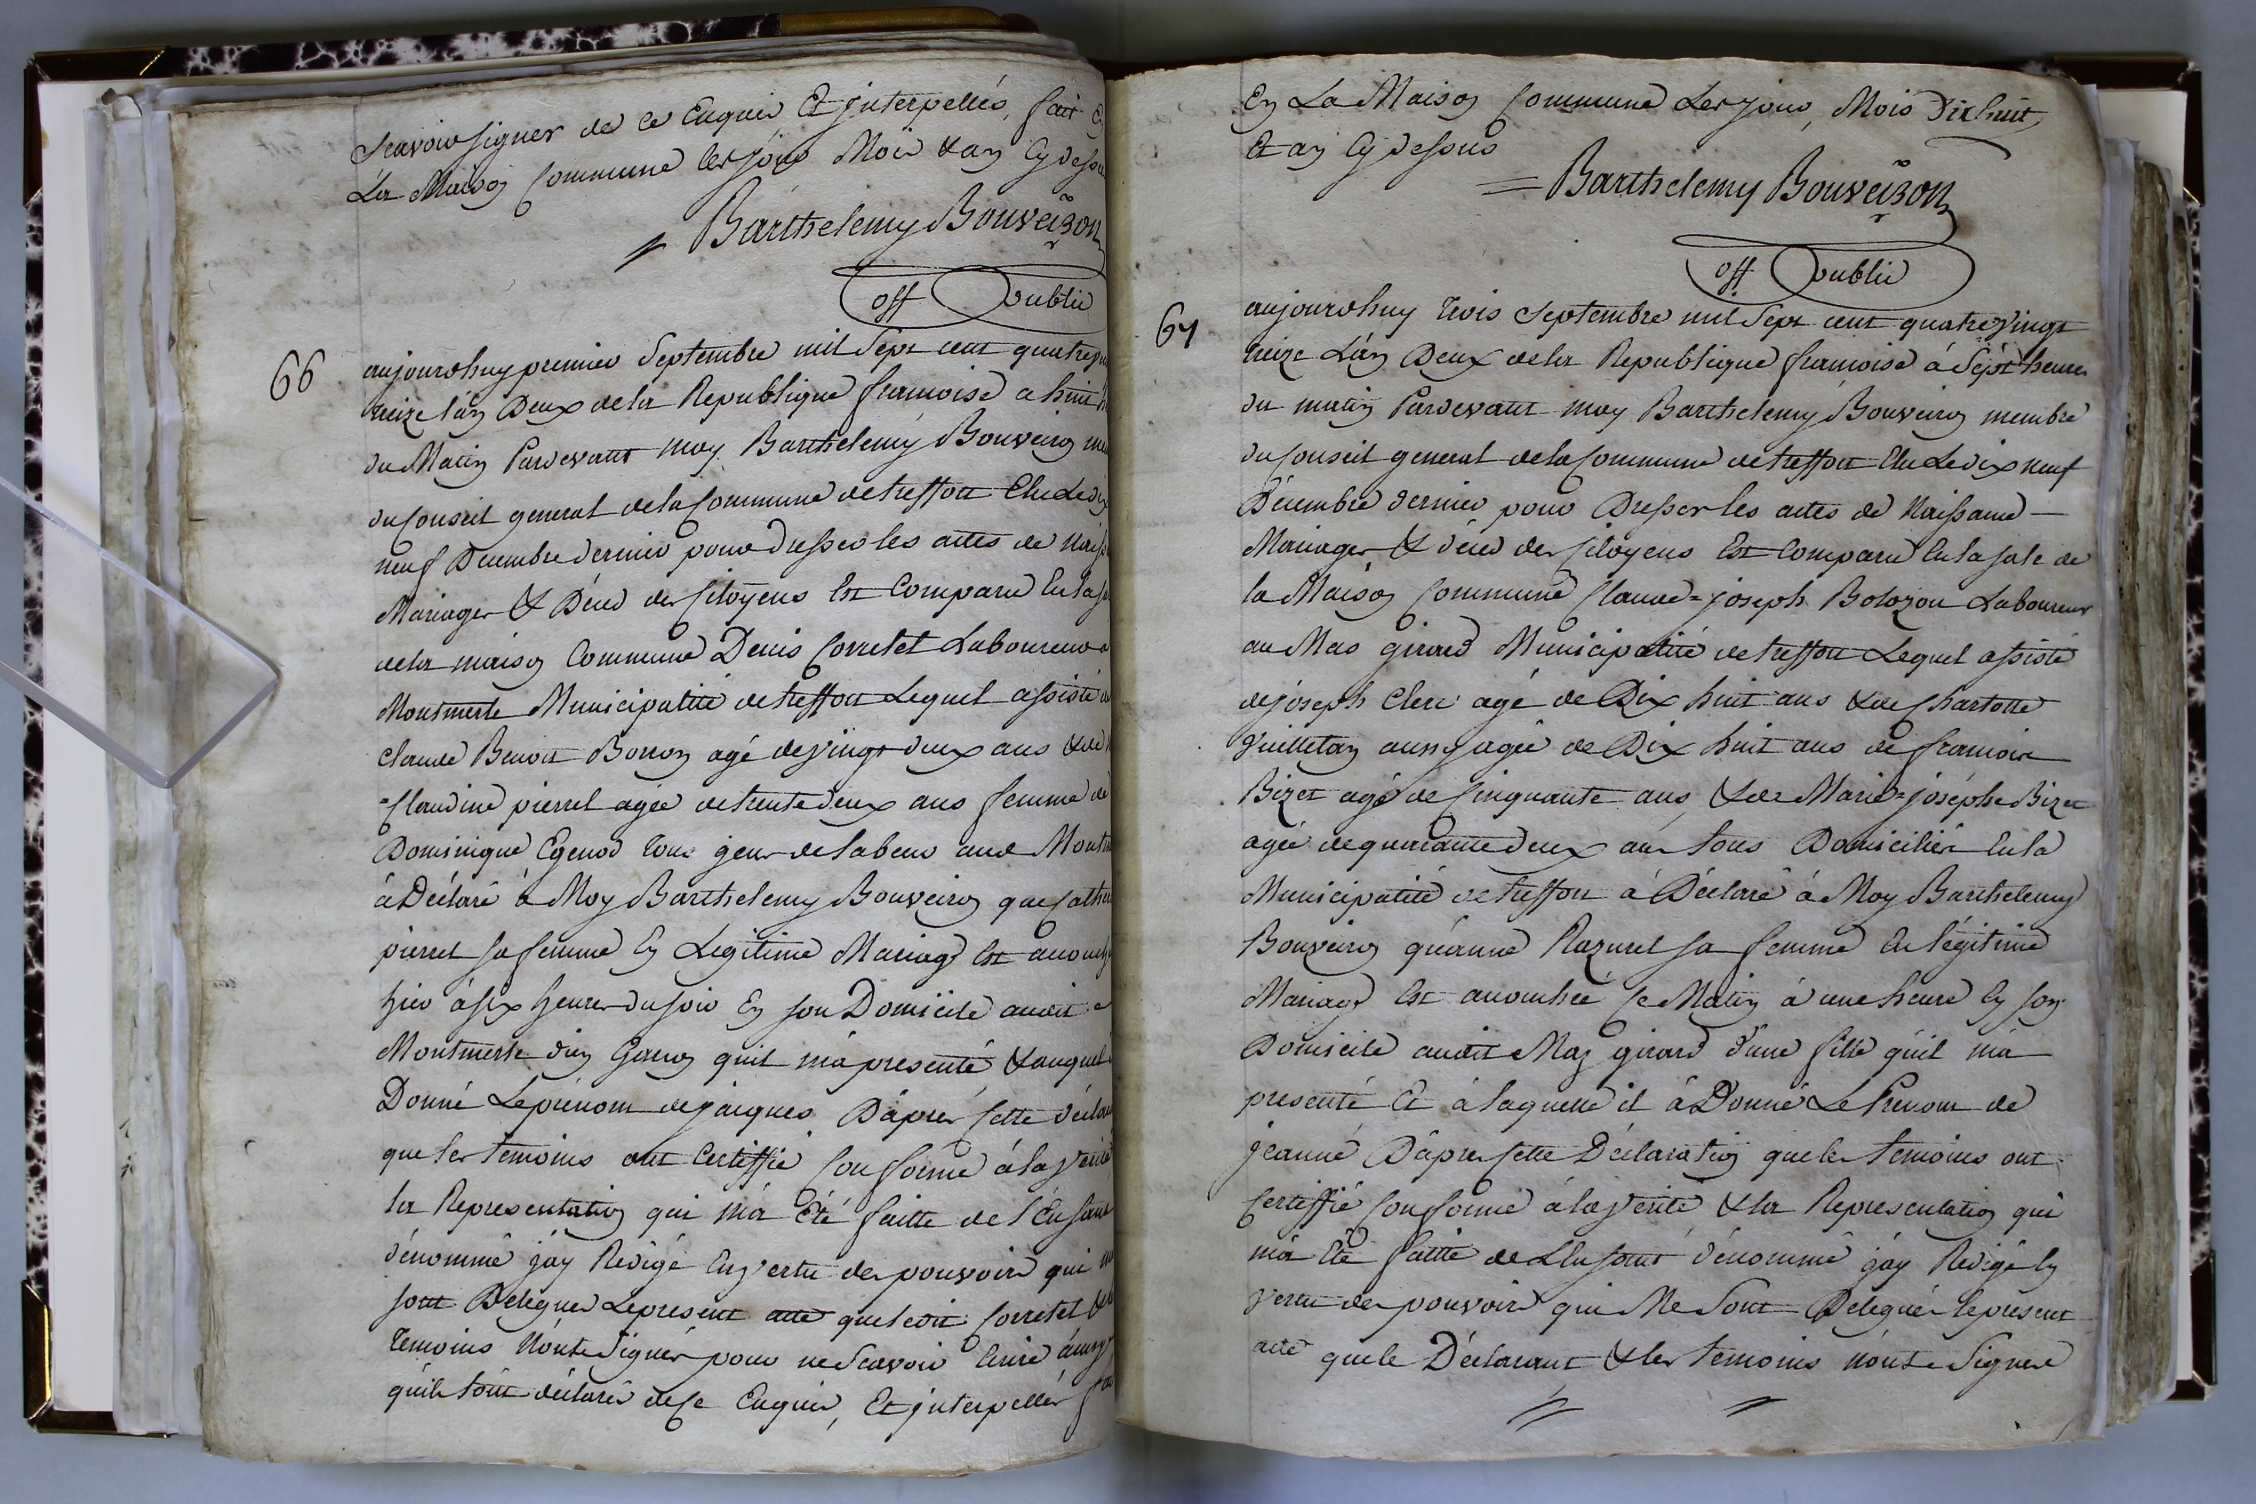 Scavoir signer de ce Enquis Et jnterpellés, fait En
La Maison Commune les jour Mois & an Cy dessu
Barthelemy Bouveiron
off public
66
aujourdhuy premier Septembre mil Sept cent quatrevin
treize l'an Deux de la Republique francoise a huit h
du Matin Pardevant moy Barthelemy Bouveiron mem
du Conseil general de la Commune de treffort Elu Le dix
neuf Decembre dernier pour dresser les actes de Naiss
Mariages & Décès des Citoyens Est Comparu En la sa
de la maison Commune Denis Corretet Laboureur a
Montmerle Municipalité de treffort Lequel assisté de
Claude Benoit Borron agé de vingt deux ans & de M
=Claudine pierrel agée de trente deux ans femme de
Dominique Egenod tous gens de labeur aud Montm
à Déclaré à Moy Barthelemy Bouveiron que Cather
pierrel sa femme En Legitime Mariage Est accouch
hier à six heures du soir En son Domicile audit
Montmerle d'un Garçon quil m'a presenté & auquel
Donné Leprénom de jacques D'aprés Cette déclar
que les temoins ont Certiffié Conforme à la verité
la Representation qui m'a Été faitte de l'Enfant
dénommé j'ay Redigé En vertu des pouvoirs qui m
sont Delegués Le present acte que ledit Corretet & les
temoins N'ont Signés pour ne Scavoir Ecrire ainsy
qu'ils l'ont déclaré de Ce Enquis, Et jnterpellés
En La Maison Commune Les jour, Mois Dix huit
Et an Cy dessus
Barthelemy Bouveiron
off public
67
aujourdhuy trois Septembre mil Sept cent quatre vingt
treize L'an Deux de la Republique francoise à Sépt heures
du matin Pardevant moy Barthelemy Bouveiron membre
du Conseil general de la Commune de treffort Elu Le dix neuf
Décembre dernier pour Dresser les actes de Naissance
Mariages & décès des Citoyens Est Comparu En la sale de
la Maison Commune Claude=joseph Bolozon Laboureur
au Mas girard Municipalité de treffort Lequel assisté
de joseph Clerc agé de Dix huit ans & de Charlotte
Guilletan aussy agée de Dix huit ans de francois
Bizet agé de Cinquante ans, & de Marie=joséphe Bizet
agée de quarante deux ans tous Domiciliés En la
Municipalité de treffort à Déclaré à Moy Barthelemy
Bouveiron qu'anne Razurel sa femme En légitime
Mariage Est accouchée Ce Matin à une heure En son
Domicile audit Maz girard d'une fille qu'il m'a
presenté Et à laquelle il à Donné Le Prenom de
jeanne D'après Cette Déclaration que les temoins ont
Certiffié Conforme à la verité, & la Representation qui
m'a Été faitte de L'Enfant dénommé j'ay Redigé En
vertu des pouvoirs qui Me Sont Delegués le présent
acte que le Déclarant & les temoins n'ont Signés